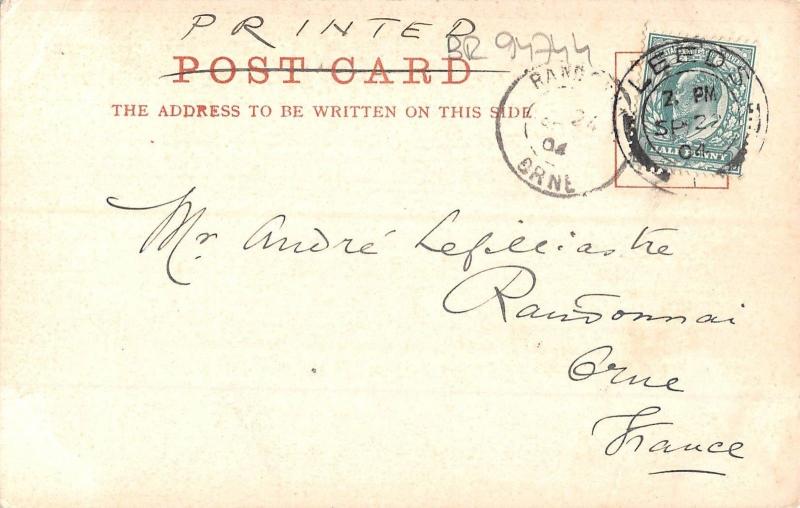 PRINTED
BR 94744
POST CARD
THE ADDRESS TO BE WRITTEN ON THIS SIDE
ORNE
24
04
LEEDS
2. PM
SP 22
04
HALFPENNY
Mr André Lefilliastre
Randonnai
Orne
France